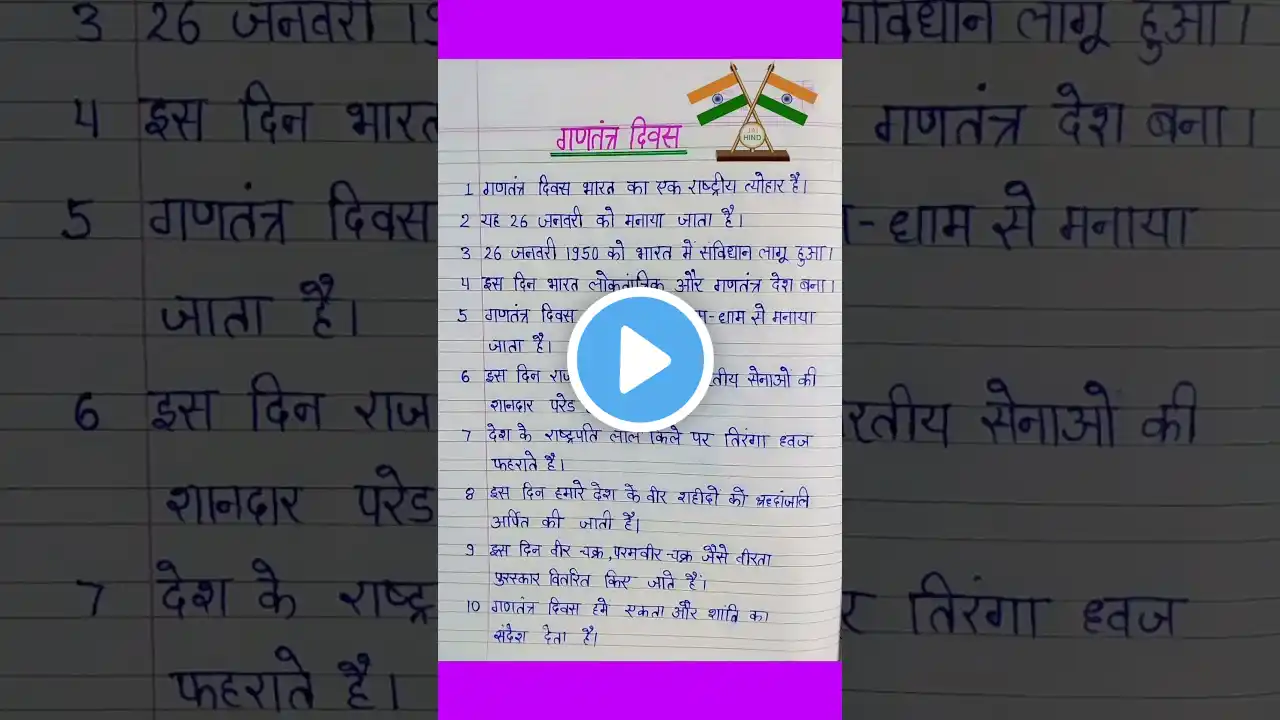 गणतंत्र दिवस
JAI
HIND
1 गणतंत्र दिवस भारत का एक राष्ट्रीय त्योहार है।
2 यह 26 जनवरी को मनाया जाता है।
3 26 जनवरी 1950 को भारत में संविधान लागू हुआ।
4 इस दिन भारत लोकतांत्रिक और गणतंत्र देश बना।
5 गणतंत्र दिवस -धाम से मनाया
जाता है।
6 इस दिन सेनाओ की
शानदार परेड
7 देश के राष्ट्रपति लाल किले पर तिरंगा ध्वज
फहराते है।
8 इस दिन हमारे देश के वीर शहीदो को श्रद्धांजलि
अर्पित की जाती है।
9 इस दिन वीर चक्र, परमवीर-चक्र जैसे वीरता
पुरस्कार वितरित किए जाते है।
10 गणतंत्र दिवस हमे एकता और शांति का
संदेश देता है।